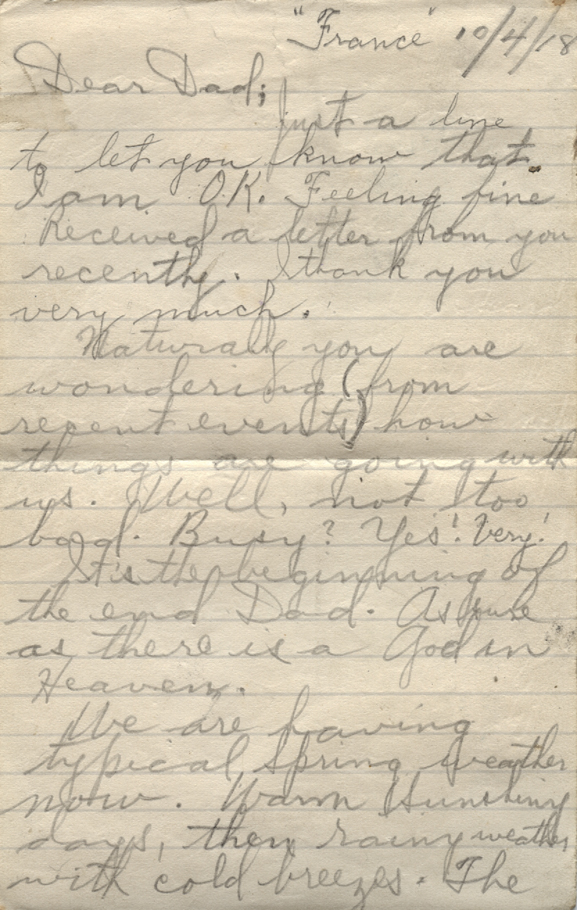 "France" 10/4/18
Dear Dad;
Just a line
to let you know that
I am O.K. Feeling fine
Received a letter from you
recently. I thank you
very much.
Naturally you are
wondering (from
recent events) how
things are going with
us. Well, not too
bad. Busy? Yes! Very!
It's the beginning of
the end Dad. As sure
as there is a God in
Heaven.
We are having
typical Spring weather
now. Warm Sunshiny
days, then rainy weather
with cold breezes. The